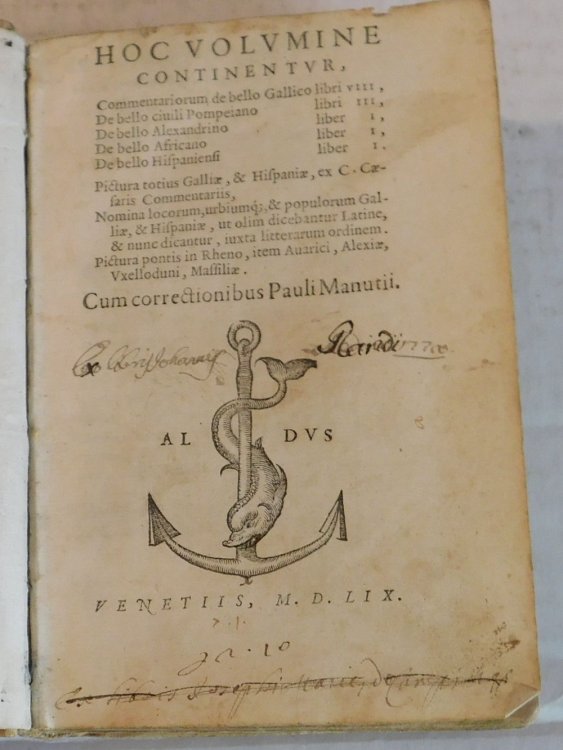 HOC VOLVMINE
CONTINENTVR,
Commentariorum de bello Gallico libri VIII,
De bello ciuili Pompeiano libri III,
De bello Alexandrino liber I,
De bello Africano liber I,
De bello Hiſpanienſi liber I.
Pictura totius Galliæ, & Hiſpaniæ, ex C. Cæ-
ſaris Commentariis,
Nomina locorum, urbiumq́; & populorum Gal-
liæ, & Hiſpaniæ, ut olim dicebantur Latine,
& nunc dicantur, iuxta litterarum ordinem.
Pictura pontis in Rheno, item Auarici, Alexiæ,
Vxelloduni, Maſſiliæ.
Cum correctionibus Pauli Manutii.
AL DVS
VENETIIS, M. D. LIX.
22.10
ex libris Josephi